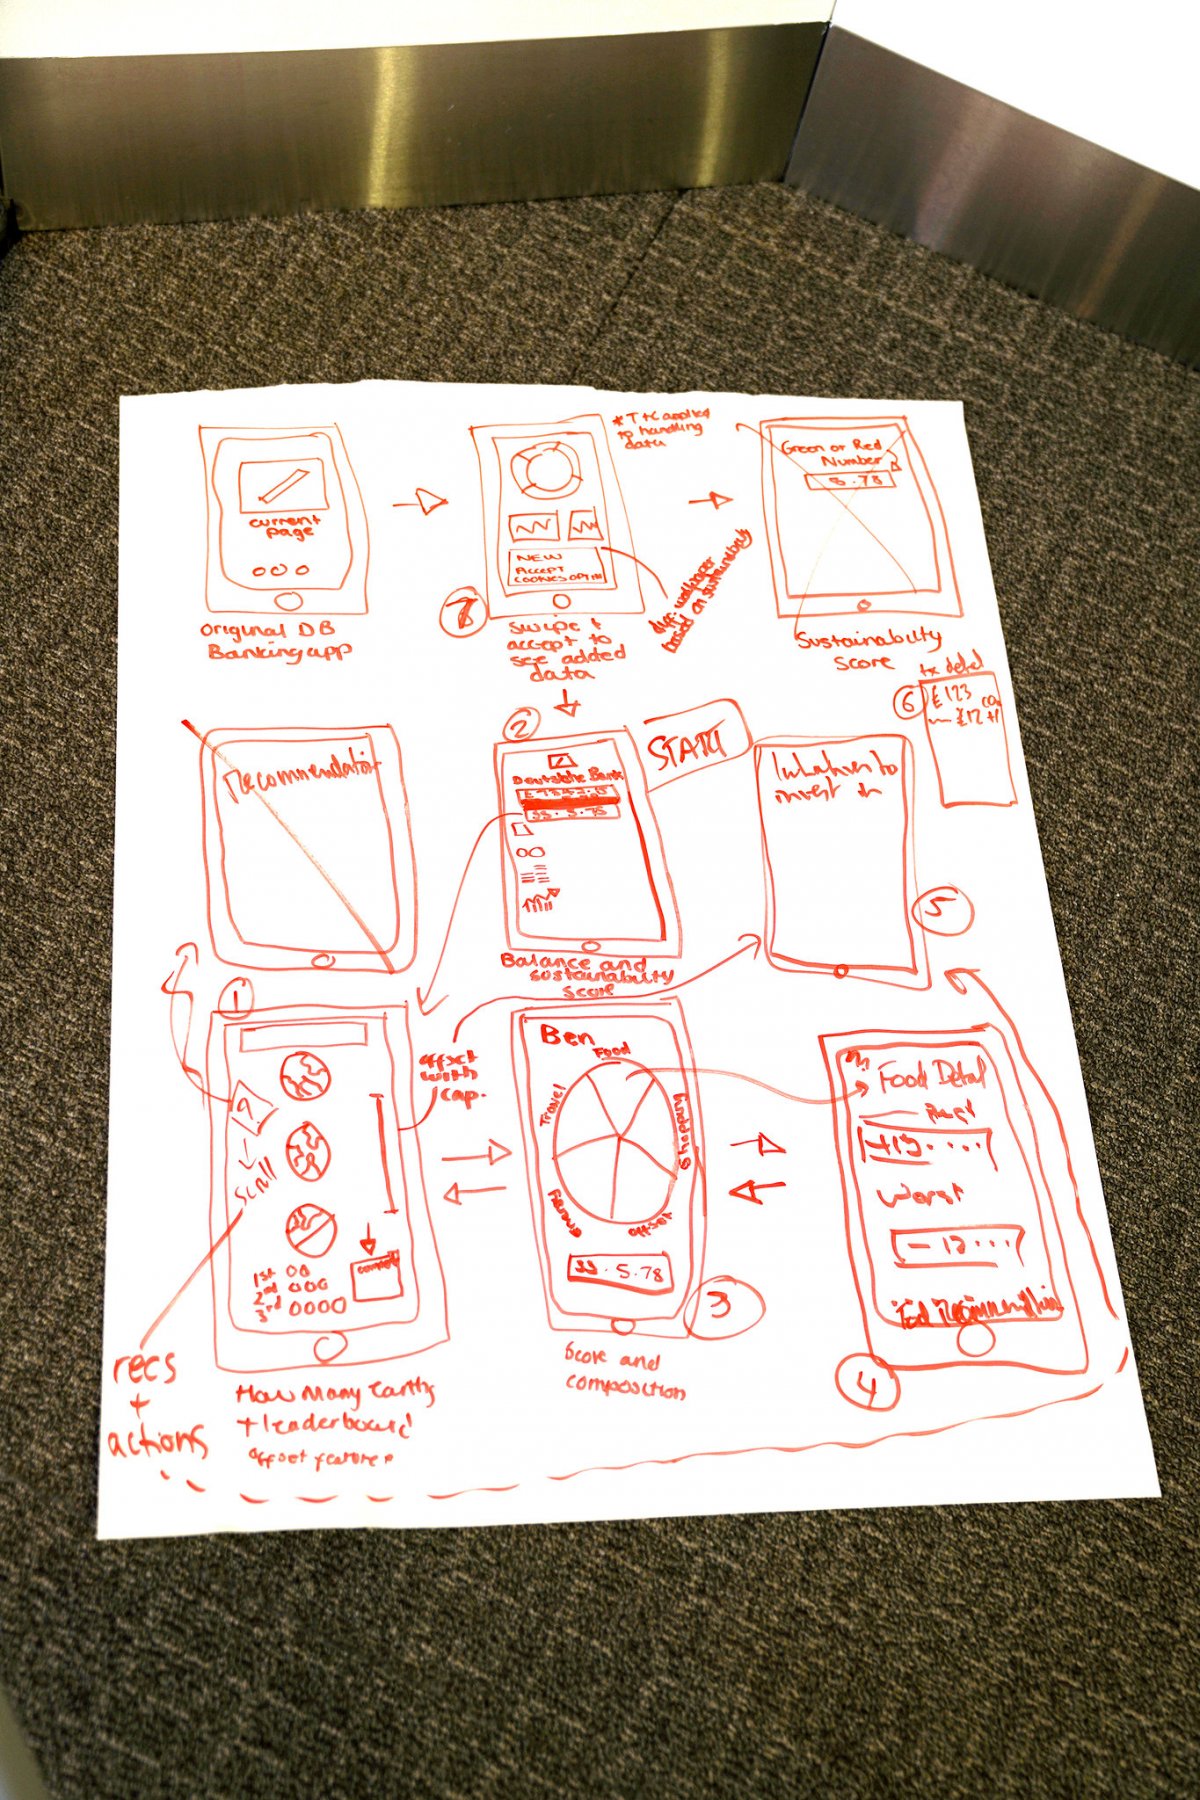 current
page
Original DB
Banking app
NEW
ACCEPT
COOKIES OPTIN
7
Swipe +
accept to
see added
data
* T+C applied
to handling
data
diff. wallpaper
based on sustainability
Green or Red
Number
5.78
Sustainability
Score
tx detail
6
£123
£12
recommendation
2
Deutsche Bank
33.5.78
START
Balance and
sustainability
Score
invest in
5
1
?
scroll
1st
2nd
3rd
offset
with
cap.
recs
+
actions
How Many Earths
+ leaderboard
offset feature
Ben
Food
Travel
Shopping
offset
33.5.78
3
Score and
composition
Food Detail
Worst
- 12...
4